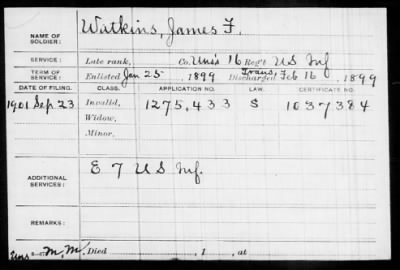 NAME OF SOLDIER: Watkins, James F.
SERVICE: Late rank, Co. Uns's 16 Reg't US Inf
TERM OF SERVICE: Enlisted Jan 25, 1899 Discharged Trans, Feb 16, 1899
DATE OF FILING. CLASS. APPLICATION NO. LAW. CERTIFICATE NO.
1901 Sep 23 Invalid, 1275,433 S 1037384
Widow,
Minor,
ADDITIONAL SERVICES: E 7 U S Inf.
REMARKS:
M.M. Died , 1 , at